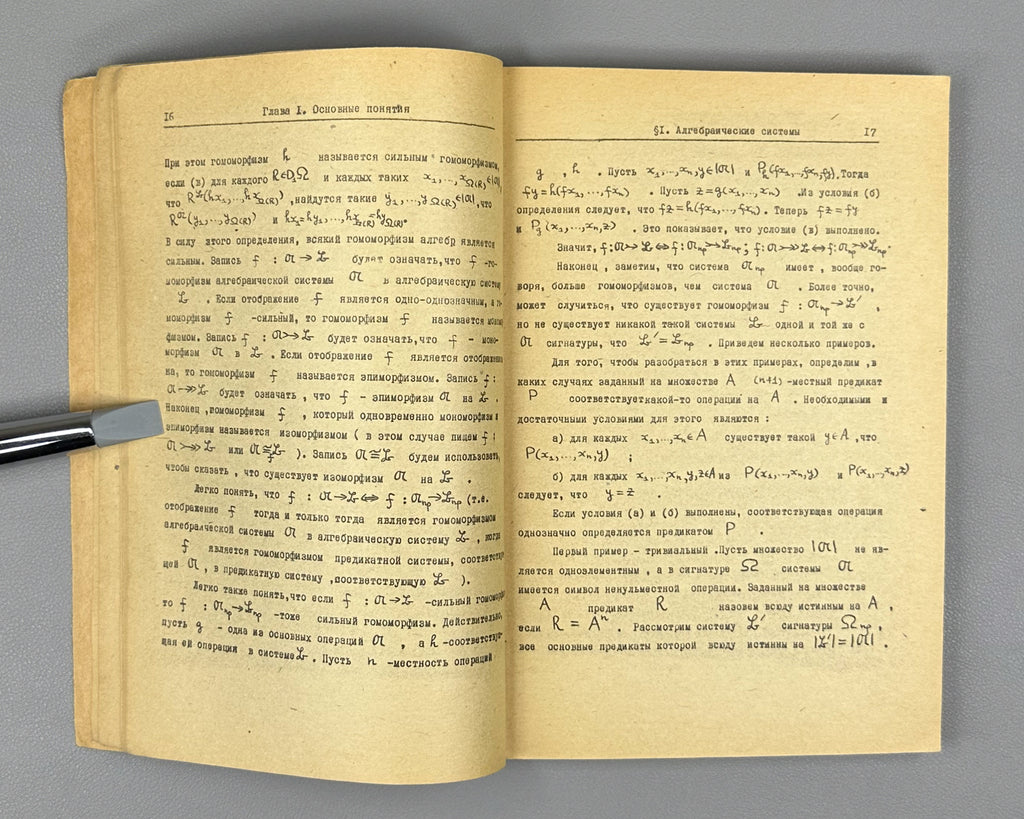 16
Глава I. Основные понятия
При этом гомоморфизм h называется сильным гомоморфизмом,
если (в) для каждого R∈D₁Ω и каждых таких x₁,...,x_Ω(R)∈|𝔄|,
что R^𝔏(hx₁,...,hx_Ω(R)) ,найдутся такие y₁,...,y_Ω(R)∈|𝔄|,что
R^𝔄(y₁,...,y_Ω(R)) и hx₁=hy₁,...,hx_Ω(R)=hy_Ω(R).
В силу этого определения, всякий гомоморфизм алгебр является
сильным. Запись f : 𝔄→𝔏 будет означать,что f -го-
моморфизм алгебраической системы 𝔄 в алгебраическую систему
𝔏 . Если отображение f является одно-однозначным, а го-
моморфизм f -сильный, то гомоморфизм f называется мономор-
физмом. Запись f : 𝔄↣𝔏 будет означать,что f - моно-
морфизм 𝔄 в 𝔏 . Если отображение f является отображением
на, то гомоморфизм f называется эпиморфизмом. Запись f :
𝔄↠𝔏 будет означать , что f - эпиморфизм 𝔄 на 𝔏 .
Наконец ,гомоморфизм f , который одновременно мономорфизм и
эпиморфизм называется изоморфизмом ( в этом случае пишем f :
𝔄⤖𝔏 или 𝔄≅_f 𝔏 ). Запись 𝔄≅𝔏 будем использовать,
чтобы сказать , что существует изоморфизм 𝔄 на 𝔏 .
Легко понять, что f : 𝔄→𝔏⇔ f : 𝔄_пр→𝔏_пр (т.е.
отображение f тогда и только тогда является гомоморфизмом
алгебраической системы 𝔄 в алгебраическую систему 𝔏 , когда
f является гомоморфизмом предикатной системы, соответствую-
щей 𝔄 , в предикатную систему ,соответствующую 𝔏 ).
Легко также понять,что если f : 𝔄→𝔏 -сильный гомоморфизм,
то f : 𝔄_пр→𝔏_пр -тоже сильный гомоморфизм. Действительно,
пусть g - одна из основных операций 𝔄 , а h -соответствую-
щая ей операция в системе 𝔏 . Пусть n -местность операций
§I. Алгебраические системы
17
g , h . Пусть x₁,...,xₙ,y∈|𝔄| и P_h(fx₁,...,fxₙ,fy).Тогда
fy=h(fx₁,...,fxₙ) . Пусть z=g(x₁,...,xₙ) .Из условия (б)
определения следует, что fz=h(fx₁,...,fxₙ). Теперь fz=fy
и P_g(x₁,...,xₙ,z) . Это показывает, что условие (в) выполнено.
Значит, f:𝔄↣𝔏⇔f:𝔄_пр↣𝔏_пр; f:𝔄↠𝔏⇔f:𝔄_пр↠𝔏_пр.
Наконец , заметим, что система 𝔄_пр имеет , вообще го-
воря, больше гомоморфизмов, чем система 𝔄 . Более точно,
может случиться, что существует гомоморфизм f : 𝔄_пр→𝔏′ ,
но не существует никакой такой системы 𝔏 одной и той же с
𝔄 сигнатуры, что 𝔏′=𝔏_пр . Приведем несколько примеров.
Для того, чтобы разобраться в этих примерах, определим ,в
каких случаях заданный на множестве A (n+1) -местный предикат
P соответствует какой-то операции на A . Необходимыми и
достаточными условиями для этого являются :
а) для каждых x₁,...,xₙ∈A существует такой y∈A ,что
P(x₁,...,xₙ,y) ;
б) для каждых x₁,...,xₙ,y,z∈A из P(x₁,...,xₙ,y) и P(x₁,...,xₙ,z)
следует, что y=z .
Если условия (а) и (б) выполнены, соответствующая операция
однозначно определяется предикатом P .
Первый пример - тривиальный .Пусть множество |𝔄| не яв-
ляется одноэлементным , а в сигнатуре Ω системы 𝔄
имеется символ ненульместной операции. Заданный на множестве
A предикат R назовем всюду истинным на A ,
если R = Aⁿ . Рассмотрим систему 𝔏′ сигнатуры Ω_пр ,
все основные предикаты которой всюду истинны на |𝔏′|=|𝔄| .